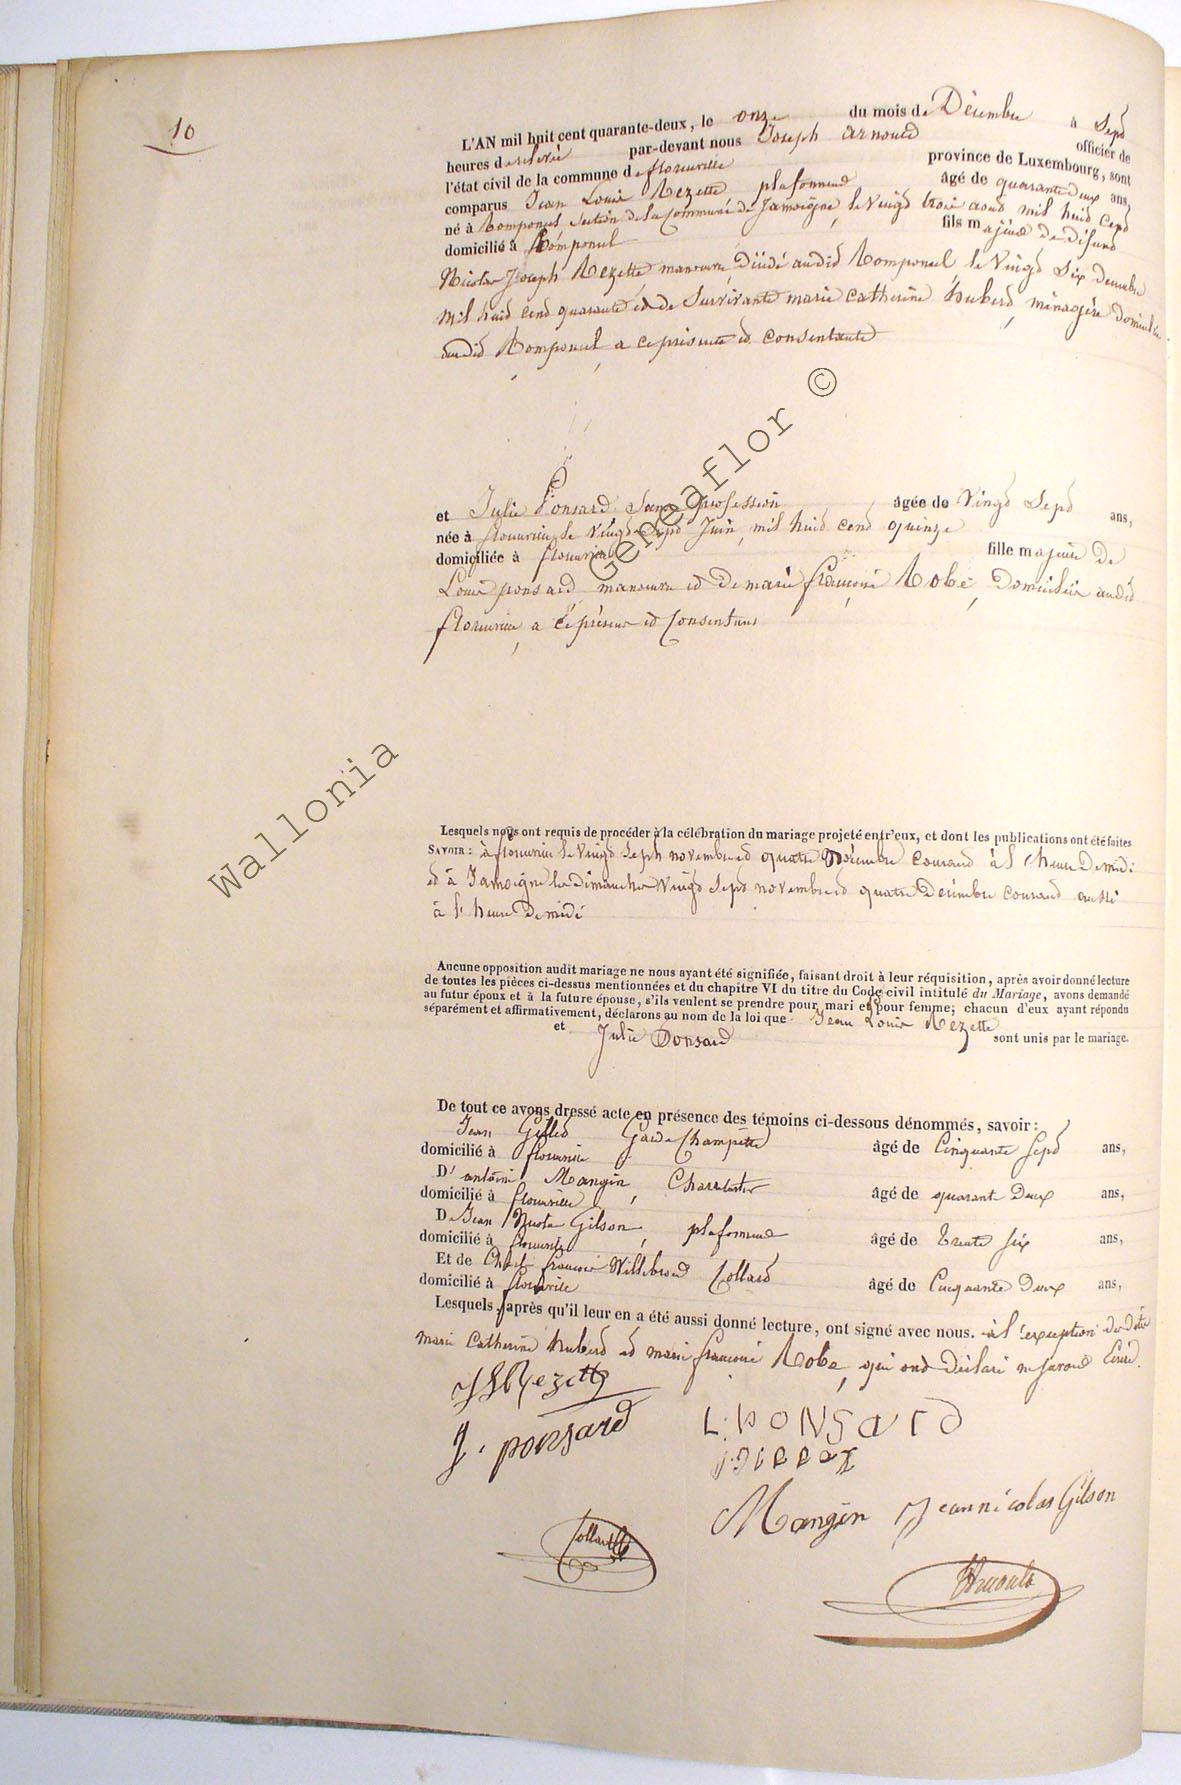 10
L'AN mil huit cent quarante-deux, le onze du mois de Décembre à Sept
heures de relevée par-devant nous Joseph Arnould officier de
l'état civil de la commune de florenville province de Luxembourg, sont
comparus Jean Louis Rezette plafonneur âgé de quarante deux ans,
né à Romponcel Section de la Commune de Jamoigne, le vingt trois aout mil huit cent
domicilié à Romponcel fils majeur de défunt
Nicolas Joseph Rezette manœuvre, Décédé audit Romponcel, le Vingt Six decembre
mil huit cent quarante et de Survivante marie Catherine hubert, ménagère Domiciliée
audit Romponcel a ce présente et consentante
et Julie Ponsard Sans profession âgée de Vingt Sept ans,
née à florenville le vingt sept Juin, mil huit cent quinze
domiciliée à florenville fille majeure de
Louis ponsard, manœuvre et de marie françoise Robe, Domiciliés audit
florenville a ce présens et Consentans
Lesquels nous ont requis de procéder à la célébration du mariage projeté entr'eux, et dont les publications ont été faites
SAVOIR: à florenville le vingt Sept novembre et quatre Décembre Courant à l'heure De midi
et à Jamoigne les dimanches Vingt Sept novembre et quatre Décembre Courant aussi
à l'heure De midi
Aucune opposition audit mariage ne nous ayant été signifiée, faisant droit à leur réquisition, après avoir donné lecture
de toutes les pièces ci-dessus mentionnées et du chapitre VI du titre du Code civil intitulé du Mariage, avons demandé
au futur époux et à la future épouse, s'ils veulent se prendre pour mari et pour femme; chacun d'eux ayant répondu
séparément et affirmativement, déclarons au nom de la loi que Jean Louis Rezette
et Julie Ponsard sont unis par le mariage.
De tout ce avons dressé acte en présence des témoins ci-dessous dénommés, savoir:
Jean Garde Champêtre
domicilié à florenville âgé de Cinquante Sept ans,
D'antoine Mangin, Charpentier
domicilié à florenville âgé de quarante Deux ans,
De Jean Nicolas Gilson, plafonneur
domicilié à florenville âgé de trente six ans,
Et de françois Willebrord Collard
domicilié à florenville âgé de Cinquante Deux ans,
Lesquels, après qu'il leur en a été aussi donné lecture, ont signé avec nous. à l'exception des dites
marie Catherine hubert et marie françoise Robe, qui ont Déclaré ne savoir Ecrire.
JLRezette
J. ponsard
L: PONSARD
Mangin Jean nicolas Gilson
Collard
Arnould
Wallonia Geneaflor ©